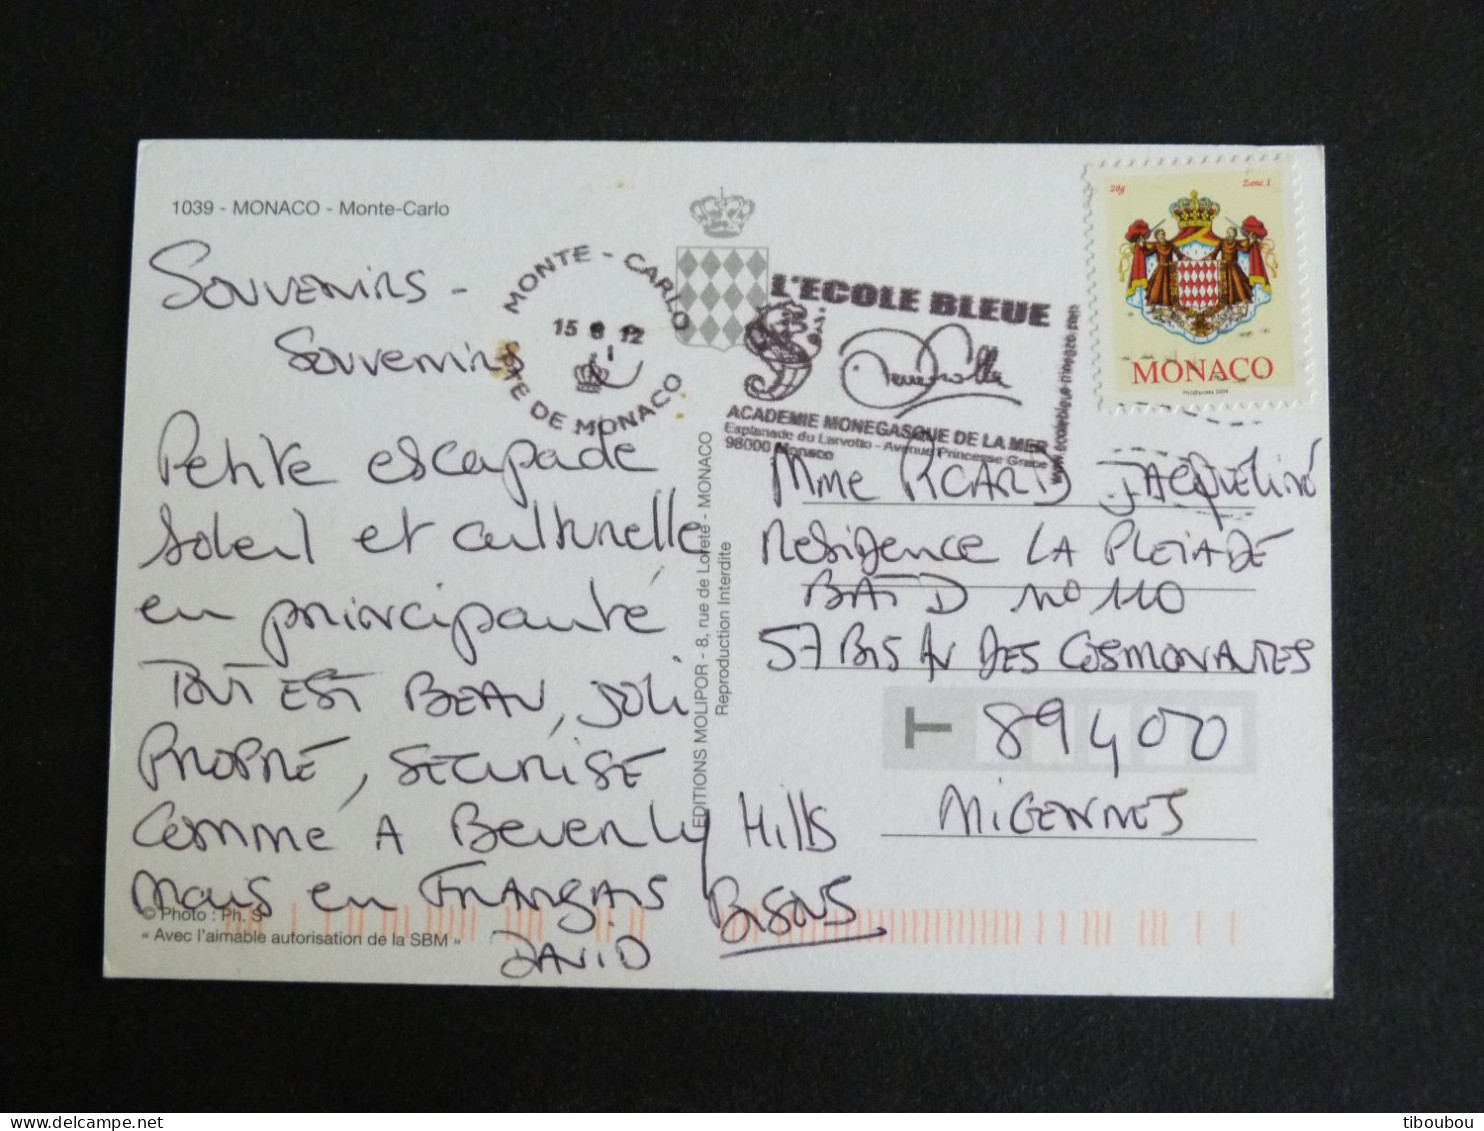 1039 - MONACO - Monte-Carlo
Souvenirs -
Souvenirs
Petite escapade
soleil et culturelle
en principauté
TOUT EST BEAU, JOLI
PROPRE, SECURISE
COMME A BEVERLY Hills
MAIS en FRANÇAIS BISOUS
DAVID
© Photo : Ph. S
« Avec l'aimable autorisation de la SBM »
EDITIONS MOLIPOR - 8, rue de Lorete - MONACO
Reproduction Interdite
MONTE - CARLO
15 6 12
PTE DE MONACO
L'ECOLE BLEUE
ACADEMIE MONEGASQUE DE LA MER
Esplanade du Larvotto - Avenue Princesse Grace
98000 Monaco
www.ecolebleue-monaco.com
20g Zone 1
MONACO
Mme PICARD JACQUELINE
Residence LA PLEIADE
BAT D N° 110
57 BIS AV DES COSMONAUTES
T 89400
MIGENNES
tiboubou